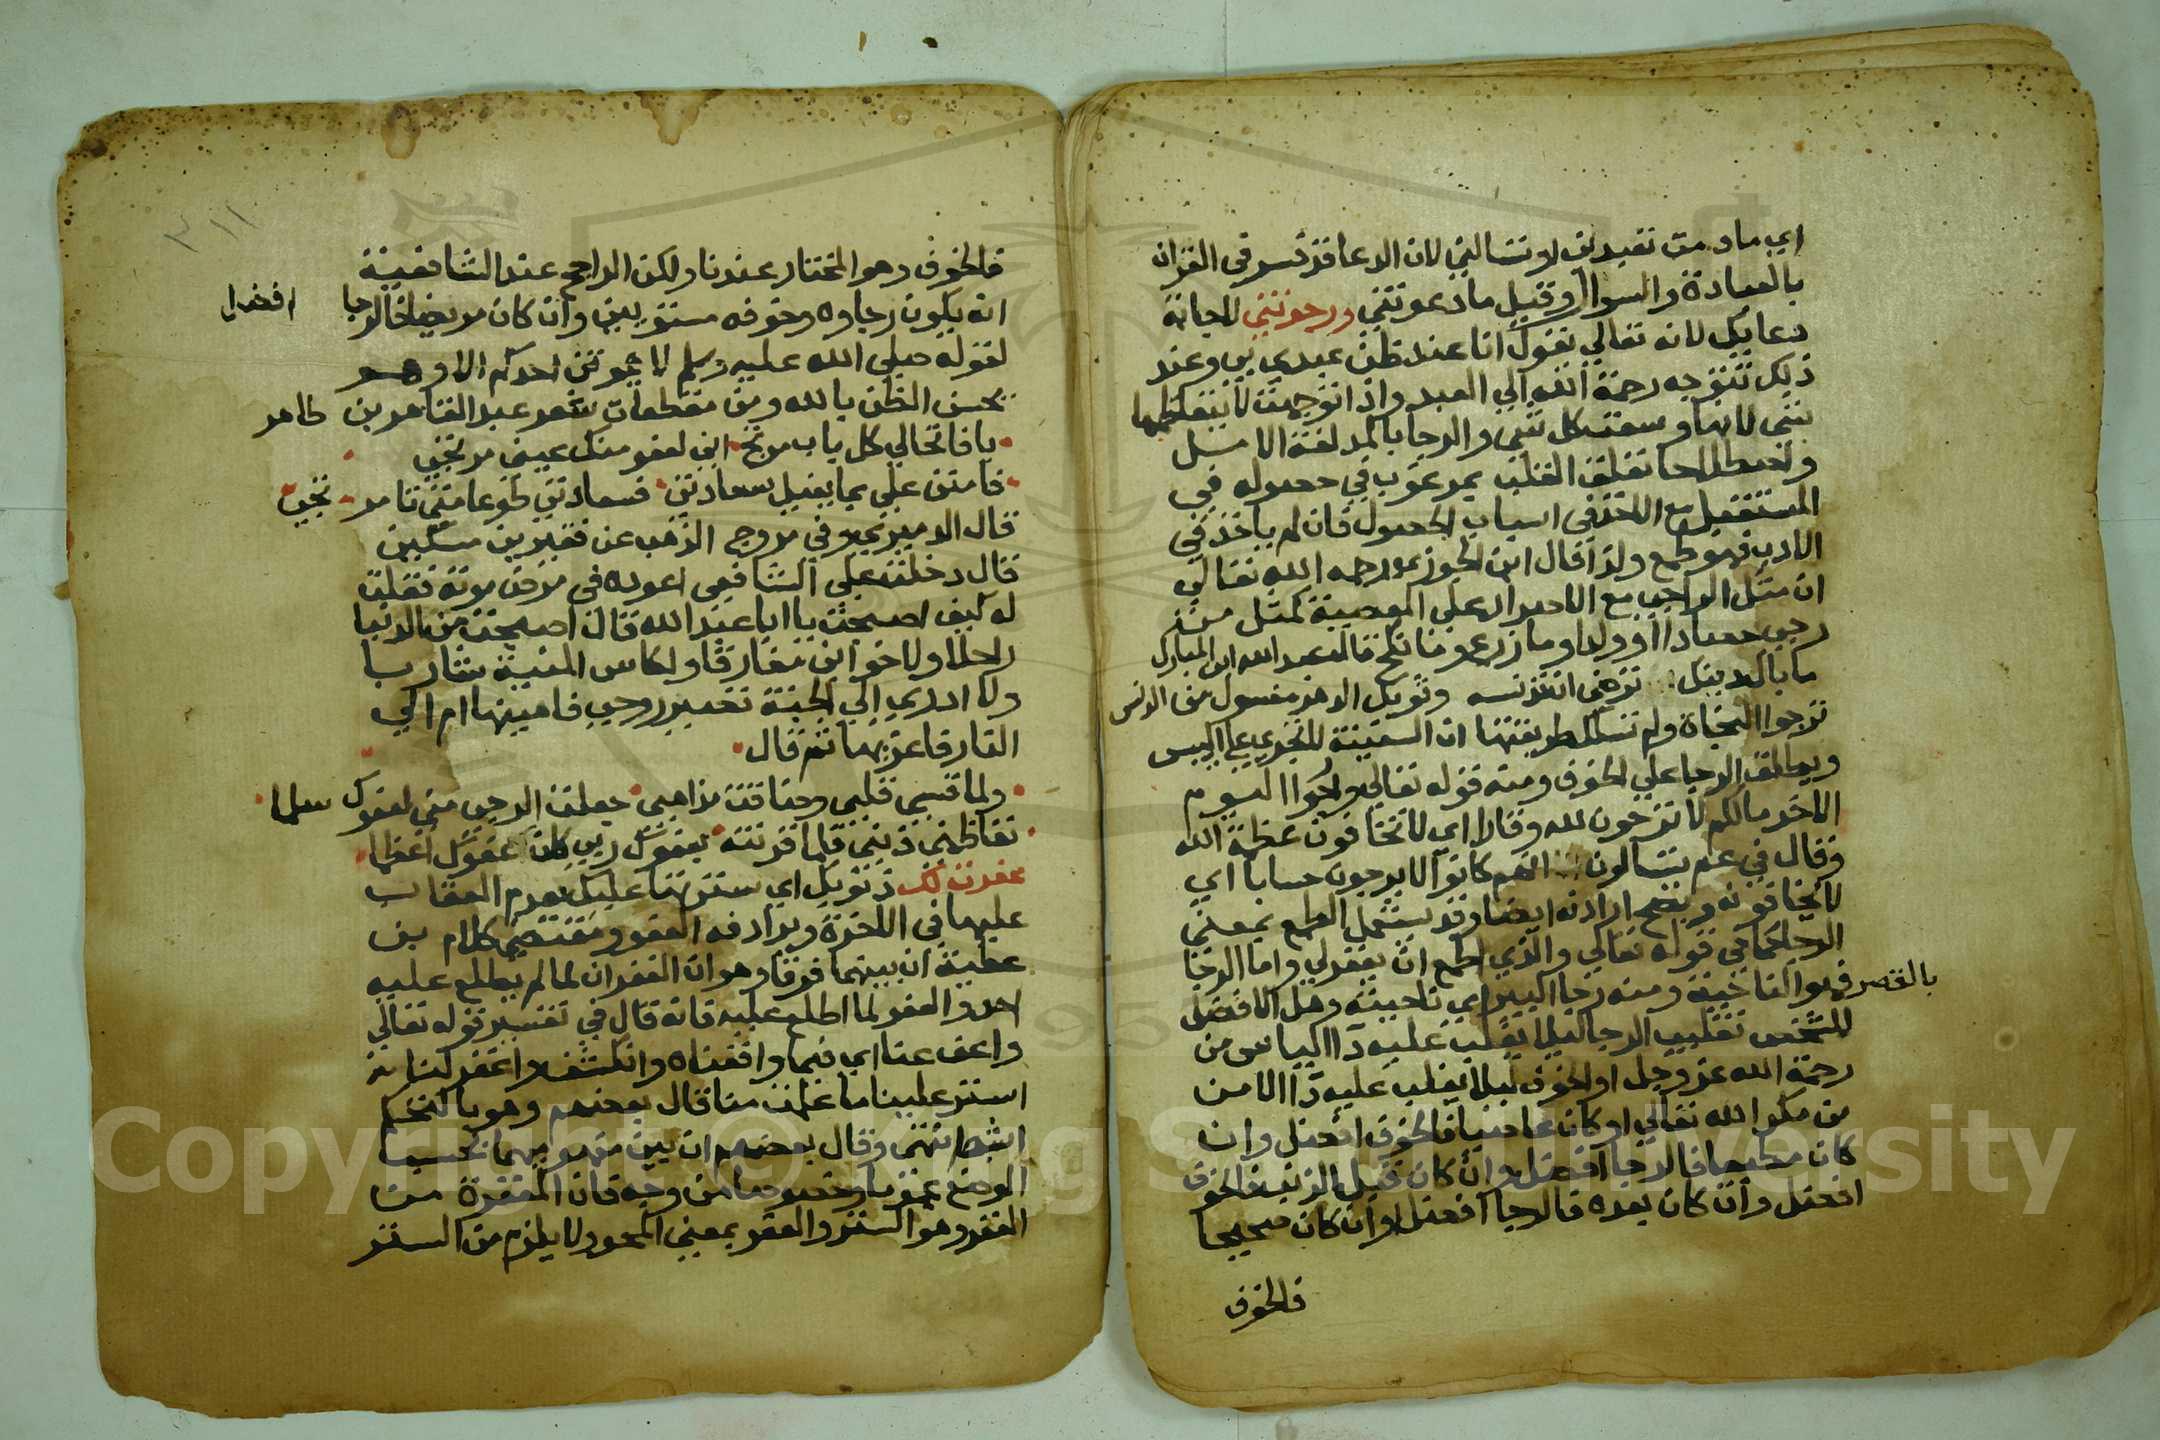 اي ما دمت تعبدني او تسالني لان الدعا قد فسر في القران
بالعبادة والسوال وقيل ما دعوتني ورجوتني لاجابة
دعايك لانه تعالي يقول انا عند ظن عبدي بي وعند
ذلك تتوجه رحمة الله الي العبد واذا توجهت لا يتعاظمها
شي لانها وسعت كل شي والرجا بالمد لغة الامل
واصطلاحا تعلق القلب بمرغوب في حصوله في
المستقبل مع الاخذ في اسباب الحصول فان لم ياخذ في
الاسباب فهو طمع ولذا قال ابن الجوزي رحمه الله تعالي
ان مثل الراجي مع الاصرار علي المعصية كمثل من
رجي حصادا او ولدا وما زرع وما نكح قال عبد الله ابن المبارك
ما بال دينك ترضي ان تدنسه وثوبك الدهر مغسول من الدنس
ترجوا النجاة ولم تسلك طريقتها ان السفينة لا تجري علي اليبس
ويطلق الرجا علي الخوف ومنه قوله تعالي وارجوا اليوم
الاخر مالكم لا ترجون لله وقارا اي لا تخافون عظمة الله
وقال في عم يتسالون انهم كانوا لا يرجون حسابا اي
لا يخافونه ويصح ارادته ايضا وقد يستعمل الطمع بمعني
الرجا كما في قوله تعالي والذي اطمع ان يغفر لي واما الرجا
بالقصر فهو الناحية ومنه رجا البير اي ناحيته وهل الافضل
للشخص تغليب الرجا ليلا يغلب عليه داء الياس من
رحمة الله عز وجل او الخوف ليلا يغلب عليه داء الامن
من مكر الله تعالي او كان عاصيا فالخوف افضل وان
كان مطيعا فالرجا افضل وان كان قبل الذنب فالخوف
افضل وان كان بعده فالرجا افضل او ان كان صحيحا
فالخوف
٣١١
فالخوف وهو المختار عندنا ولكن الراجح عند الشافعية
انه يكون رجاوه وخوفه مستويين وان كان مريضا فالرجا افضل
لقوله صلي الله عليه وسلم لا يموتن احدكم الا وهو
يحسن الظن بالله ومن مقطعات شعر عبد القاهر بن طاهر
يا فاتحا لي كل باب مرتج اني لعفو منك عيني مرتجي
فامنن علي بما يفيل سعادتي فسعادتي طوعا متي تامر تجي
قال الدميري وفي مروج الذهب عن فقير بن مسكين
قال دخلت علي الشافعي اعوده في مرض موته فقلت
له كيف اصبحت يا ابا عبد الله قال اصبحت من الدنيا
راحلا ولاخواني مفارقا ولكاس المنية شاربا
ولا ادري الي الجنة تصير روحي فاهنيها ام الي
النار فاعزيها ثم قال
ولما قسي قلبي وضاقت مذاهبي جعلت الرجي مني لعفوك سلما
تعاظمني ذنبي فلما قرنته بعفوك ربي كان عفوك اعظما
غفرت لك ذنوبك اي سترتها عليك بعدم العقاب
عليها في الاخرة ويرادفه العفو ومقتضي كلام بن
عطية ان بينهما فرقا وهو ان الغفران لما لم يطلع عليه
احد والعفو لما اطلع عليه فانه قال في تفسير قوله تعالي
واعف عنا اي فيما واقعناه وانكشف واغفر لنا اي
استر علينا ما علمت منا قال بعضهم وهو بالتحكم
اشبه انتهي وقال بعضهم ان بين مفهوميهما بحسب
الوضع عموما وخصوصا من وجه فان المغفرة من
الغفر وهو الستر والعفو بمعني المحو ولا يلزم من الستر